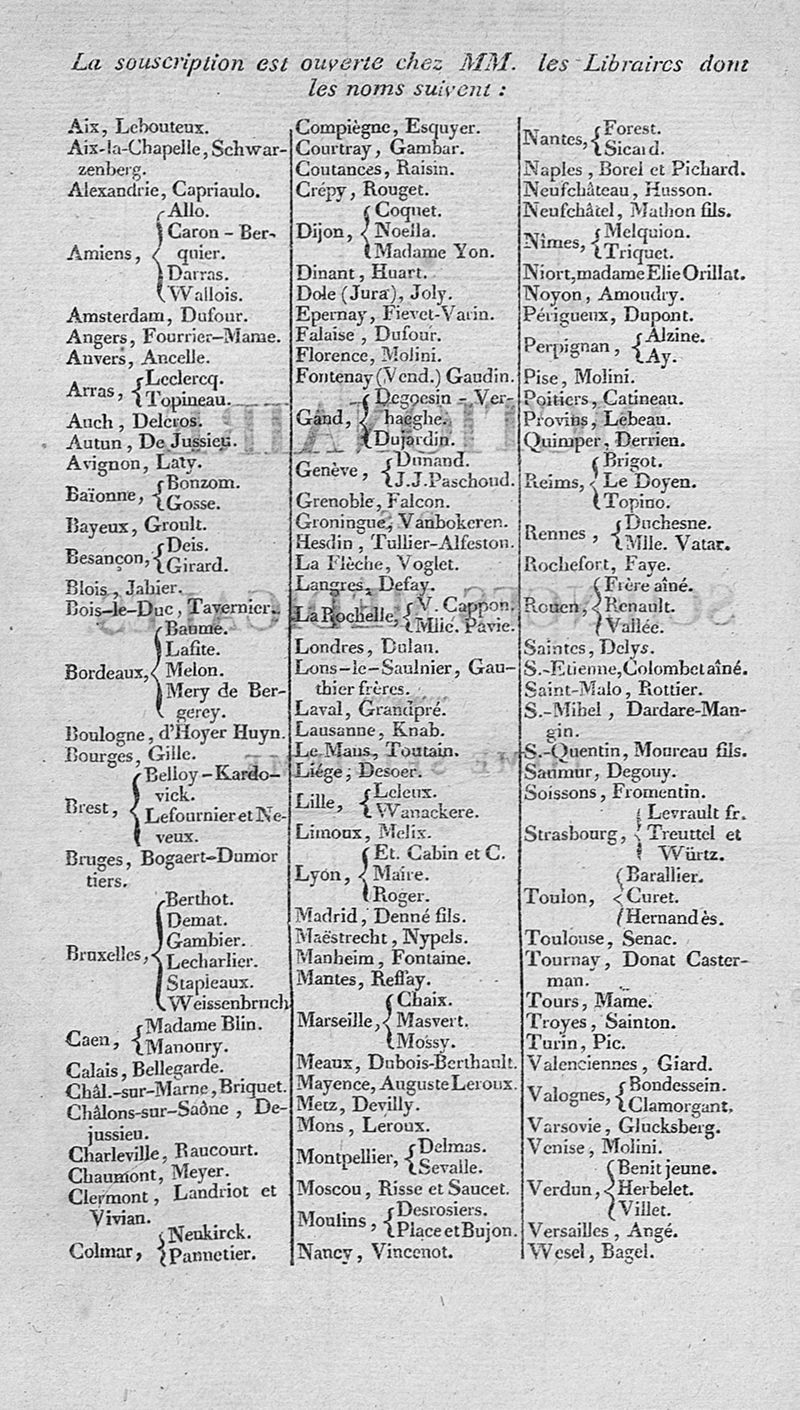 La souscription est ouverte chez MM. les Libraires dont
les noms suivent :
Aix, Lebouteux.
Aix-la-Chapelle, Schwar-
zenberg.
Alexandrie, Capriaulo.
Amiens, { Allo.
Caron - Ber-
quier.
Darras.
Wallois.
Amsterdam, Dufour.
Angers, Fourrier-Mame.
Anvers, Ancelle.
Arras, { Leclercq.
Topineau.
Auch, Delcros.
Autun, De Jussieu.
Avignon, Laty.
Baïonne, { Bonzom.
Gosse.
Bayeux, Groult.
Besançon, { Deis.
Girard.
Blois, Jahier.
Bois-le-Duc, Tavernier.
Bordeaux, { Baume.
Lafite.
Melon.
Mery de Ber-
gerey.
Boulogne, d'Hoyer Huyn.
Bourges, Gille.
Brest, { Belloy-Kardo-
vick.
Lefournier et Ne-
veux.
Bruges, Bogaert-Dumor
tiers.
Bruxelles, { Berthot.
Demat.
Gambier.
Lecharlier.
Stapleaux.
Weissenbruch
Caen, { Madame Blin.
Manoury.
Calais, Bellegarde.
Châl.-sur-Marne, Briquet.
Châlons-sur-Saône, De-
jussieu.
Charleville, Raucourt.
Chaumont, Meyer.
Clermont, Landriot et
Vivian.
Colmar, { Neukirck.
Pannetier.
Compiègne, Esquyer.
Courtray, Gambar.
Coutances, Raisin.
Crépy, Rouget.
Dijon, { Coquet.
Noella.
Madame Yon.
Dinant, Huart.
Dole (Jura), Joly.
Epernay, Fievet-Varin.
Falaise, Dufour.
Florence, Molini.
Fontenay (Vend.) Gaudin.
Gand, { Degoesin - Ver-
haeghe.
Dujardin.
Genève, { Dunand.
J.J.Paschoud.
Grenoble, Falcon.
Groningue, Vanbokeren.
Hesdin, Tullier-Alfeston.
La Flèche, Voglet.
Langres, Defay.
La Rochelle, { V. Cappon.
Mlle. Pavie.
Londres, Dulau.
Lons-le-Saulnier, Gau-
thier frères.
Laval, Grandpré.
Lausanne, Knab.
Le Mans, Toutain.
Liége, Desoer.
Lille, { Leleux.
Wanackere.
Limoux, Melix.
Lyon, { Et. Cabin et C.
Maire.
Roger.
Madrid, Denné fils.
Maëstrecht, Nypels.
Manheim, Fontaine.
Mantes, Reffay.
Marseille, { Chaix.
Masvert.
Mossy.
Meaux, Dubois-Berthault.
Mayence, Auguste Leroux.
Metz, Devilly.
Mons, Leroux.
Montpellier, { Delmas.
Sevalle.
Moscou, Risse et Saucet.
Moulins, { Desrosiers.
Place et Bujon.
Nancy, Vincenot.
Nantes, { Forest.
Sicard.
Naples, Borel et Pichard.
Neufchâteau, Husson.
Neufchâtel, Mathon fils.
Nîmes, { Melquion.
Triquet.
Niort, madame Elie Orillat.
Noyon, Amoudry.
Périgueux, Dupont.
Perpignan, { Alzine.
Ay.
Pise, Molini.
Poitiers, Catineau.
Provins, Lebeau.
Quimper, Derrien.
Reims, { Brigot.
Le Doyen.
Topino.
Rennes, { Duchesne.
Mlle. Vatar.
Rochefort, Faye.
Rouen, { Frère aîné.
Renault.
Vallée.
Saintes, Delys.
S.-Etienne, Colombet aîné.
Saint-Malo, Rottier.
S.-Mihel, Dardare-Man-
gin.
S.-Quentin, Moureau fils.
Saumur, Degouy.
Soissons, Fromentin.
Strasbourg, { Levrault fr.
Treuttel et
Würtz.
Toulon, { Barallier.
Curet.
Hernandès.
Toulouse, Senac.
Tournay, Donat Caster-
man.
Tours, Mame.
Troyes, Sainton.
Turin, Pic.
Valenciennes, Giard.
Valognes, { Bondessein.
Clamorgant.
Varsovie, Glucksberg.
Venise, Molini.
Verdun, { Benit jeune.
Herbelet.
Villet.
Versailles, Angé.
Wesel, Bagel.